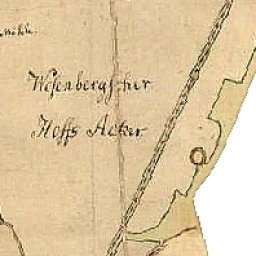 Wesenbergscher
Hoffs Acker